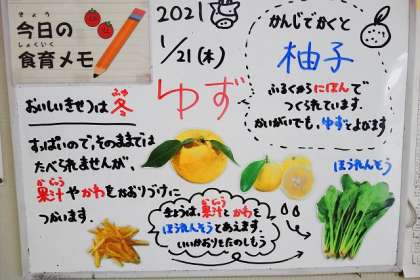 きょう
今日の
しょくいく
食育メモ
2021
1/21(木)
ゆず
かんじでかくと
柚子
ふるくからにほんで
つくられています。
かいがいでも、ゆずとよびます
おいしいきせつは冬
ふゆ
すっぱいので、そのままでは
たべられませんが、
かじゅう
果汁やかわをかおりづけに
つかいます。
きょうは、果汁とかわを
かじゅう
ほうれんそうとあえます。
いいかおりをたのしもう
ほうれんそう